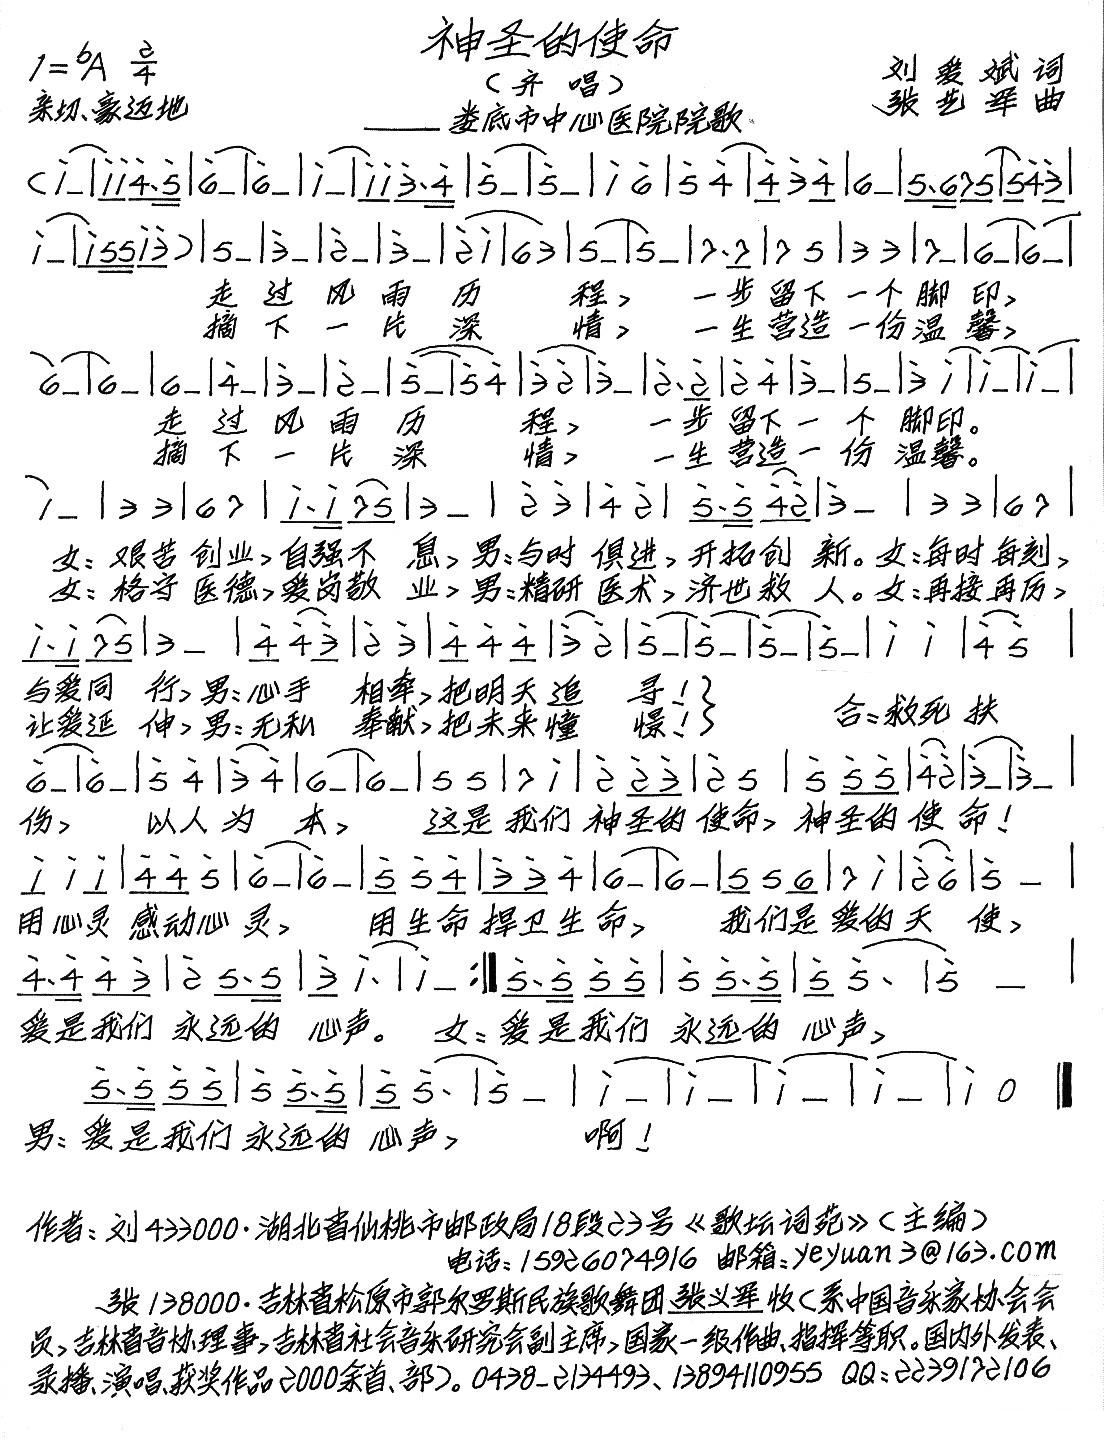 神圣的使命
1=♭A 2/4
(齐唱)
刘爱斌 词
亲切、豪迈地
——娄底市中心医院院歌
张艺军 曲
走过风雨历 程, 一步留下一个脚 印,
摘下一片深 情, 一生营造一份温 馨,
走过风雨历 程, 一步留下一个脚印。
摘下一片深 情, 一生营造一份温馨。
女:艰苦创业,自强不 息,男:与时俱进,开拓创 新。女:每时每刻,
女:格守医德,爱岗敬 业,男:精研医术,济世救 人。女:再接再历,
与爱同 行,男:心手 相牵,把明天追 寻!}
让爱延 伸,男:无私 奉献,把未来憧 憬!} 合:救死扶
伤, 以人为 本, 这是我们神圣的使命,神圣的使命!
用心灵感动心灵, 用生命捍卫生命, 我们是爱的天 使,
爱是我们永远的 心声。 女:爱是我们永远的 心声,
男:爱是我们永远的 心声, 啊!
作者:刘433000·湖北省仙桃市邮政局18段23号《歌坛词苑》(主编)
电话:15926074916 邮箱:yeyuan3@163.com
张138000·吉林省松原市郭尔罗斯民族歌舞团张义军收(系中国音乐家协会会
员,吉林省音协理事,吉林省社会音乐研究会副主席,国家一级作曲、指挥等职。国内外发表、
录播、演唱、获奖作品2000余首、部)。0438-2134493、13894110955 QQ:2239172106